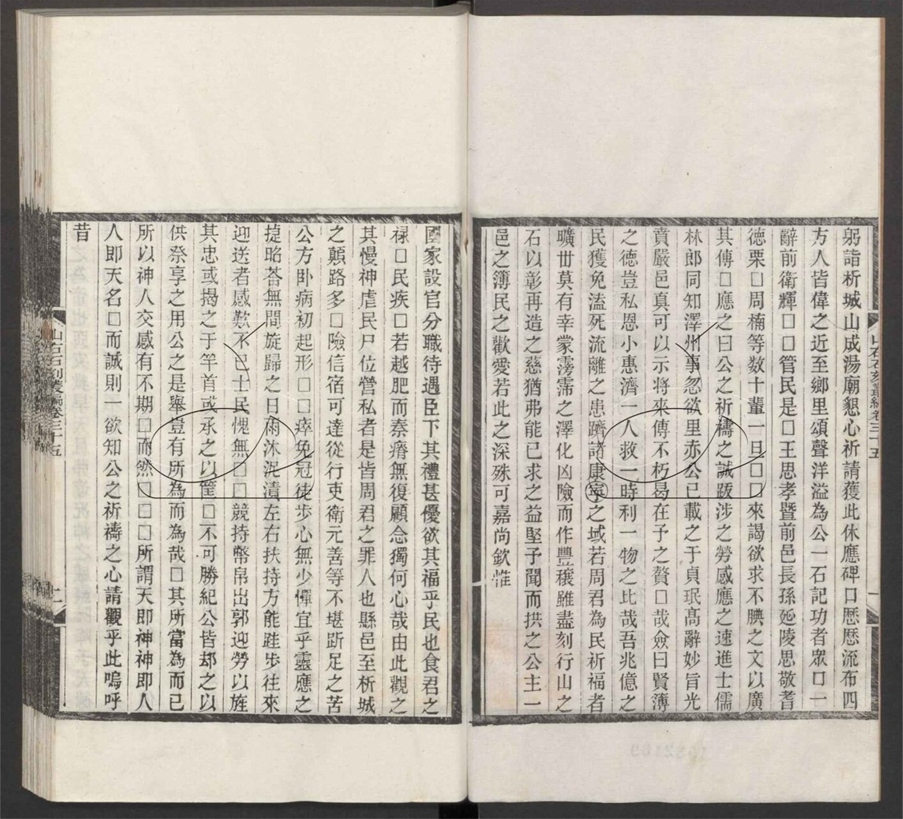 躬詣析城山成湯廟懇心祈請獲此休應碑口歷歷流布四
方人皆偉之近至鄉里頌聲洋溢為公一石記功者眾口一
辭前衛輝□□管民是□王思孝暨前邑長孫廵陵思敬耆
德栗□周楠等数十輩一旦□□來謁欲求不腆之文以廣
其傳□應之曰公之祈禱之誠跋涉之勞感應之速進士儒
林郎同知澤州事忽欲里赤公已載之于貞珉髙辭妙旨光
賁嚴邑真可以示将來傳不朽曷在予之贅□哉僉曰賢薄
之德豈私恩小惠濟一人救一時利一物之比哉吾兆億之
民獲免溢死流離之患躋諸康寧之域若周君為民祈福者
曠丗莫有幸蒙霶霈之澤化凶險而作豐穣雖盡刻行山之
石以彰再造之慈猶弗能已求之益堅予聞而拱之公主一
邑之簿民之歡愛若此之深殊可嘉尚欽惟
國家設官分職待遇臣下其禮甚優欲其福乎民也食君之
禄□民疾□若越肥而秦瘠無復顧念獨何心哉由此觀之
其慢神虐民尸位營私者是皆周君之罪人也縣邑至析城
之顛路多□險信宿可達從行吏衛元善等不堪跡足之苦
公方卧病初起形□□瘁免冠徒歩心無少憚宜乎靈應之
㨗昭荅無間旋歸之日雨沐泥濆左右扶持方能跬歩往來
迎送者感歎不已士民愧無□□競持幣帛出郭迎勞以旌
其忠或揭之于竿首或承之以筐□不可勝紀公皆却之以
供祭享之用公之是舉豈有所為而為哉□其所當為而已
所以神人交感有不期□而然□□□所謂天即神神即人
人即天名□而誠則一欲知公之祈禱之心請觀乎此嗚呼
昔